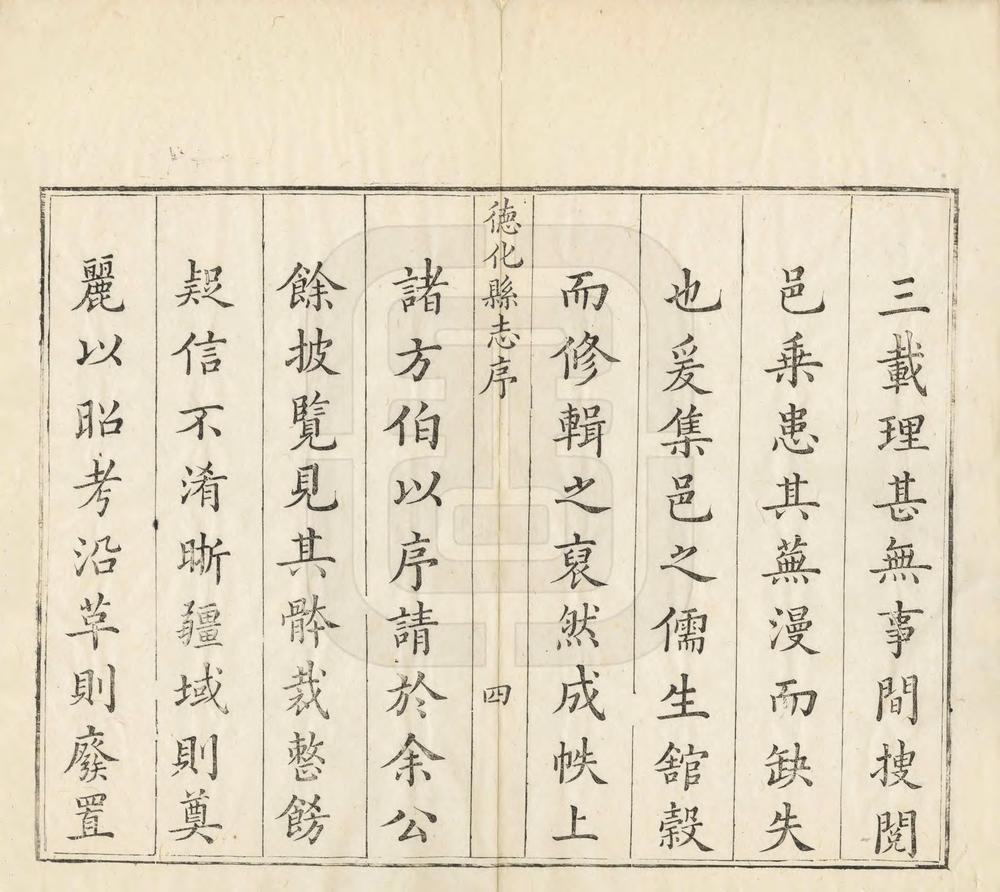 三載理甚無事間捜閱
邑乗患其蕪漫而缺失
也爰集邑之儒生舘穀
而修輯之裒然成帙上
德化縣志序
四
諸方伯以序請於余公
餘披覽見其骵裁整餝
疑信不淆晰疆域則奠
麗以昭考沿革則廢置